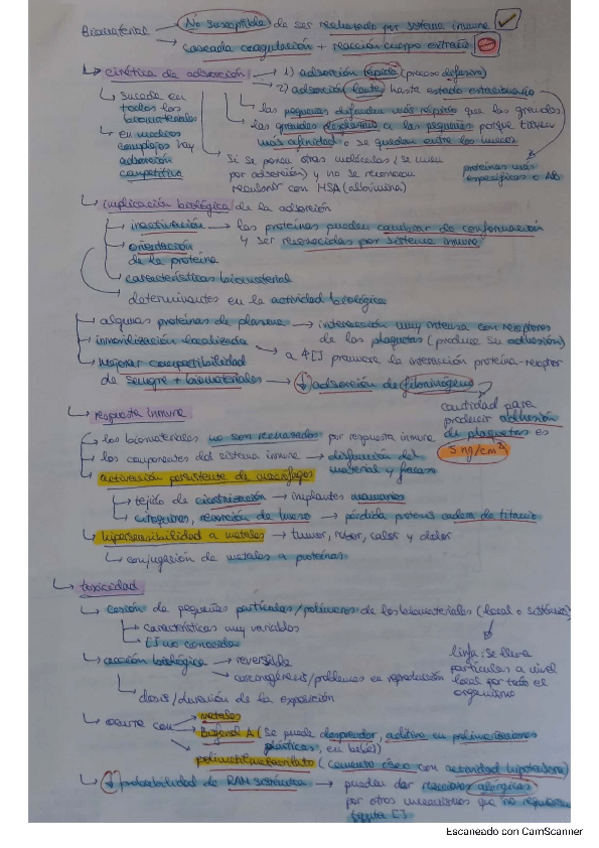 Biomaterial → No susceptible de ser rechazado por sistema inmune
→ cascada coagulación + reacción cuerpo extraño
↳ cinética de adsorción → 1) adsorción rápida (proceso difusivo)
→ 2) adsorción lenta hasta estado estacionario
↳ sucede en todos los biomateriales
↳ en medios complejos hay adsorción competitiva
↳ las pequeñas difunden más rápido que las grandes
↳ las grandes desplazan a las pequeñas porque tienen
más afinidad o se quedan entre los huecos
proteínas más específicas o Ab
Si se ponen otras moléculas (se unen
por adsorción) y no se reconocen
recubrir con HSA (albúmina)
↳ implicación biológica de la adsorción
inactivación → las proteínas pueden cambiar de conformación
y ser reconocidas por sistema inmune
orientación de la proteína
características biomaterial
determinantes en la actividad biológica
algunas proteínas de plasma → interacción muy intensa con receptores
de las plaquetas (produce su adhesión)
inmovilización localizada → a ↑[] promueve la interacción proteína-receptor
Mejorar compatibilidad
de sangre + biomateriales → ↓ adsorción de fibrinógeno
cantidad para
producir adhesión
de plaquetas es
5 ng/cm²
↳ respuesta inmune
los biomateriales no son rechazados por respuesta inmune
los componentes del sistema inmune → disfunción del
material y fracaso
activación persistente de macrófagos
↳ tejido de cicatrización → implantes mamarios
↳ citoquinas, resorción de hueso → pérdida prótesis cadera de titanio
↳ hipersensibilidad a metales → tumor, rubor, calor y dolor
↳ conjugación de metales a proteínas
↳ toxicidad
↳ cesión de pequeñas partículas/polímeros de los biomateriales (local o sistémica)
características muy variables
[] no conocida
linfa: se lleva
partículas a nivel
local por todo el
organismo
↳ acción biológica → reversible
→ carcinogénesis/problemas en reproducción
↳ dosis/duración de la exposición
↳ ocurre con → metales
→ Bisfenol A (se puede desprender, aditivo en polimerizaciones
plásticas, en bebés)
polimetilmetacrilato (cemento óseo con actividad hipotensora)
↳ ↓ probabilidad de RAM sistémica → pueden dar reacciones alérgicas
por otros mecanismos que no requieren
[]
Escaneado con CamScanner